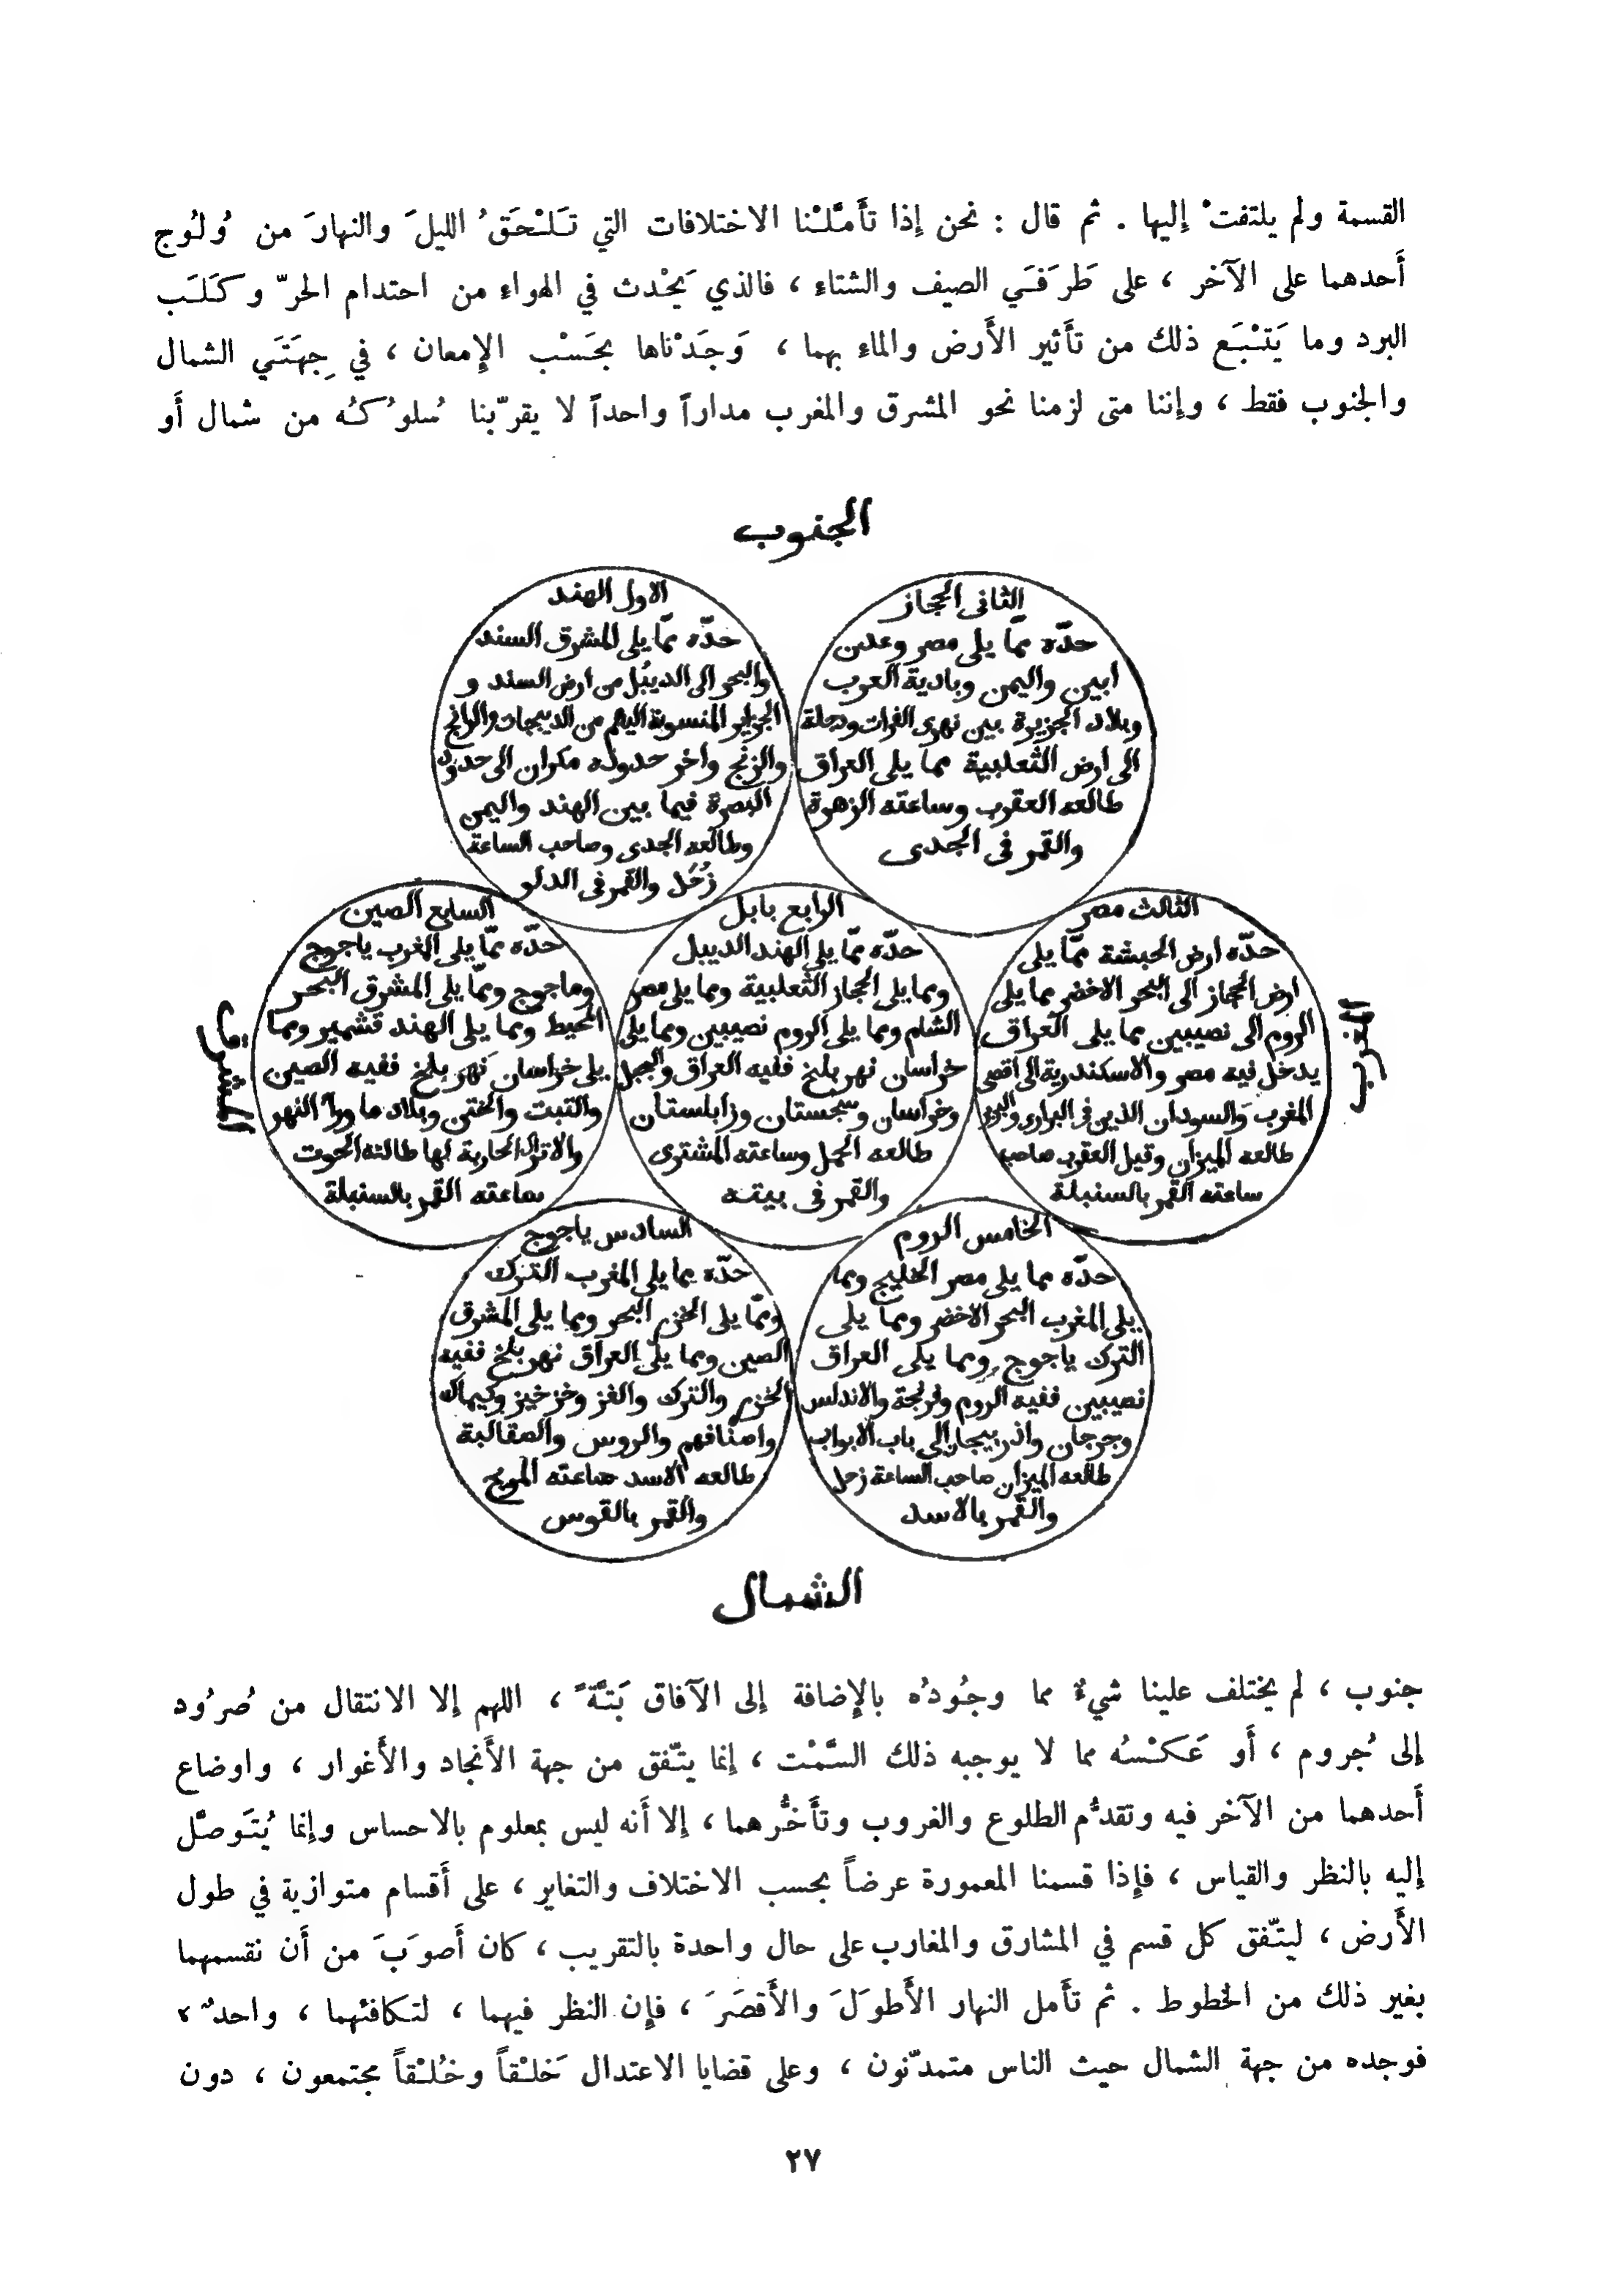 القسمة ولم يلتفتْ إليها . ثم قال : نحن إذا تأَمَّلْنا الاختلافات التي تَلْحَقُ الليلَ والنهارَ من وُلُوج
أَحدهما على الآخر ، على طَرَفَي الصيف والشتاء ، فالذي يَحْدث في الهواء من احتدام الحرّ وكَلَب
البرد وما يَتْبَع ذلك من تأَثير الأَرض والماء بهما ، وَجَدْناها بحَسْب الإِمعان ، في جِهَتَي الشمال
والجنوب فقط ، وإننا متى لزمنا نحو المشرق والمغرب مداراً واحداً لا يقرّبنا سُلوكُه من شمال أَو
الجنوب
الاول الهند
حدّه ممّا يلى المشرق السند
والبحر الى الديبُل من ارض السند و
الجزاير المنسوبة اليهم من الديبجات والرانج
والزنج واخر حدوده مكران الى حدود
البصرة فيما بين الهند واليمن
وطالعه الجدى وصاحب الساعة
زُحُل والقمر فى الدلو
الثانى الحجاز
حدّه ممّا يلى مصر وعدن
ابين واليمن وبادية العرب
وبلاد الجزيرة بين نهرى الفرات ودجلة
الى ارض الثعلبية مما يلى العراق
طالعه العقرب وساعته الزهرة
والقمر فى الجدى
الثالث مصر
حدّه ارض الحبشة ممّا يلى
ارض الحجاز الى البحر الاخضر مما يلى
الروم الى نصيبين مما يلى العراق
يدخل فيه مصر والاسكندرية الى اقصى
المغرب والسودان الذين فى البرارى والبربر
طالعه الميزان وقيل العقرب صاحب
ساعته القمر بالسنبلة
الرابع بابل
حدّه ممّا يلى الهند الديبل
ومما يلى الحجاز الثعلبية ومما يلى مصر
الشام ومما يلى الروم نصيبين ومما يلى
خراسان نهر بلخ ففيه العراق والجبل
وخراسان وسجستان وزابلستان
طالعه الحمل وساعته المشترى
والقمر فى بيته
السابع الصين
حدّه ممّا يلى المغرب ياجوج
وماجوج وممّا يلى المشرق البحر
المحيط ومما يلى الهند قشمير ومما
يلى خراسان نهر بلخ ففيه الصين
والتبت والختن وبلاد ما وراء النهر
والاتراك المحاربة لها طالعه الحوت
ساعته القمر بالسنبلة
المشرق
المغرب
الخامس الروم
حدّه مما يلى مصر الخليج ومما
يلى المغرب البحر الاخضر ومما يلى
الترك ياجوج ومما يلى العراق
نصيبين ففيه الروم وفرنجة والاندلس
وجرجان واذربيجان الى باب الابواب
طالعه الميزان صاحب الساعة زحل
والقمر بالاسد
السادس ياجوج
حدّه مما يلى المغرب الترك
وممّا يلى الخزر البحر ومما يلى المشرق
الصين ومما يلى العراق نهر بلخ ففيه
الخزر والترك والغز وخرخيز وكيماك
واصنافهم والروس والصقالبة
طالعه الاسد ساعته المريخ
والقمر بالقوس
الشمال
جنوب ، لم يختلف علينا شيءٌ مما وجُودُه بالإِضافة إلى الآفاق بَتَّةً ، اللهم إلا الانتقال من صُرُود
إلى جُروم ، أَو عَكْسُه مما لا يوجبه ذلك السَّمْت ، إنما يتّفق من جهة الأَنجاد والأَغوار ، واوضاع
أَحدهما من الآخر فيه وتقدُّم الطلوع والغروب وتأَخُّرهما ، إلا أَنه ليس بمعلوم بالاحساس وإنما يُتَوصَّل
إليه بالنظر والقياس ، فإِذا قسمنا المعمورة عرضاً بحسب الاختلاف والتغاير ، على أَقسام متوازية في طول
الأَرض ، ليتّفق كل قسم في المشارق والمغارب على حال واحدة بالتقريب ، كان أَصوَبَ من أَن نقسمهما
بغير ذلك من الخطوط . ثم تأَمل النهار الأَطوَلَ والأَقصَرَ ، فإِن النظر فيهما ، لتكافئهما ، واحدٌ ،
فوجده من جهة الشمال حيث الناس متمدّنون ، وعلى قضايا الاعتدال خَلْقاً وخُلْقاً مجتمعون ، دون
٢٧